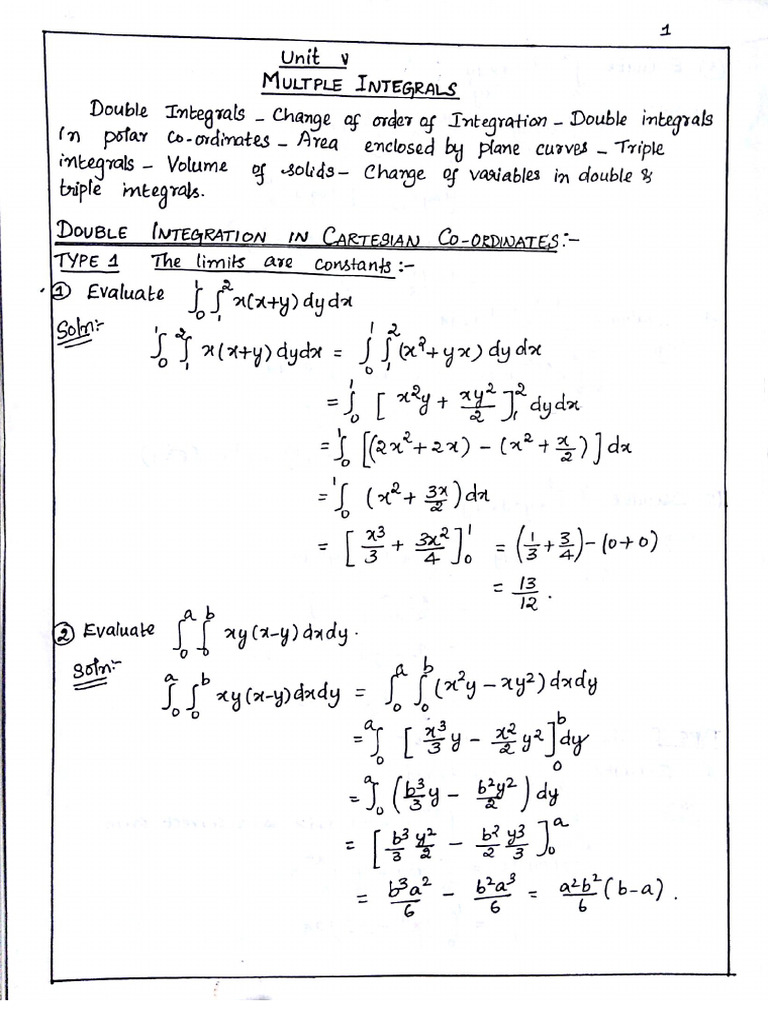 1
Unit V
MULTPLE INTEGRALS
Double Integrals - Change of order of Integration - Double integrals
in polar co-ordinates - Area enclosed by plane curves - Triple
integrals - Volume of solids - Change of variables in double &
triple integrals.
DOUBLE INTEGRATION IN CARTESIAN CO-ORDINATES:-
TYPE 1 The limits are constants:-
① Evaluate ∫₀¹ ∫₁² x(x+y) dy dx
Soln:-
∫₀¹ ∫₁² x(x+y) dy dx = ∫₀¹ ∫₁² (x²+yx) dy dx
= ∫₀¹ [x²y + xy²/2]₁² dy dx
= ∫₀¹ [(2x²+2x) - (x² + x/2)] dx
= ∫₀¹ (x² + 3x/2) dx
= [x³/3 + 3x²/4]₀¹ = (1/3 + 3/4) - (0+0)
= 13/12 .
② Evaluate ∫₀ᵃ ∫₀ᵇ xy(x-y) dx dy.
Soln:-
∫₀ᵃ ∫₀ᵇ xy(x-y) dx dy = ∫₀ᵃ ∫₀ᵇ (x²y - xy²) dx dy
= ∫₀ᵃ [x³/3 y - x²/2 y²]₀ᵇ dy
= ∫₀ᵃ (b³/3 y - b²y²/2) dy
= [b³/3 y²/2 - b²/2 y³/3]₀ᵃ
= b³a²/6 - b²a³/6 = a²b²/6 (b-a) .